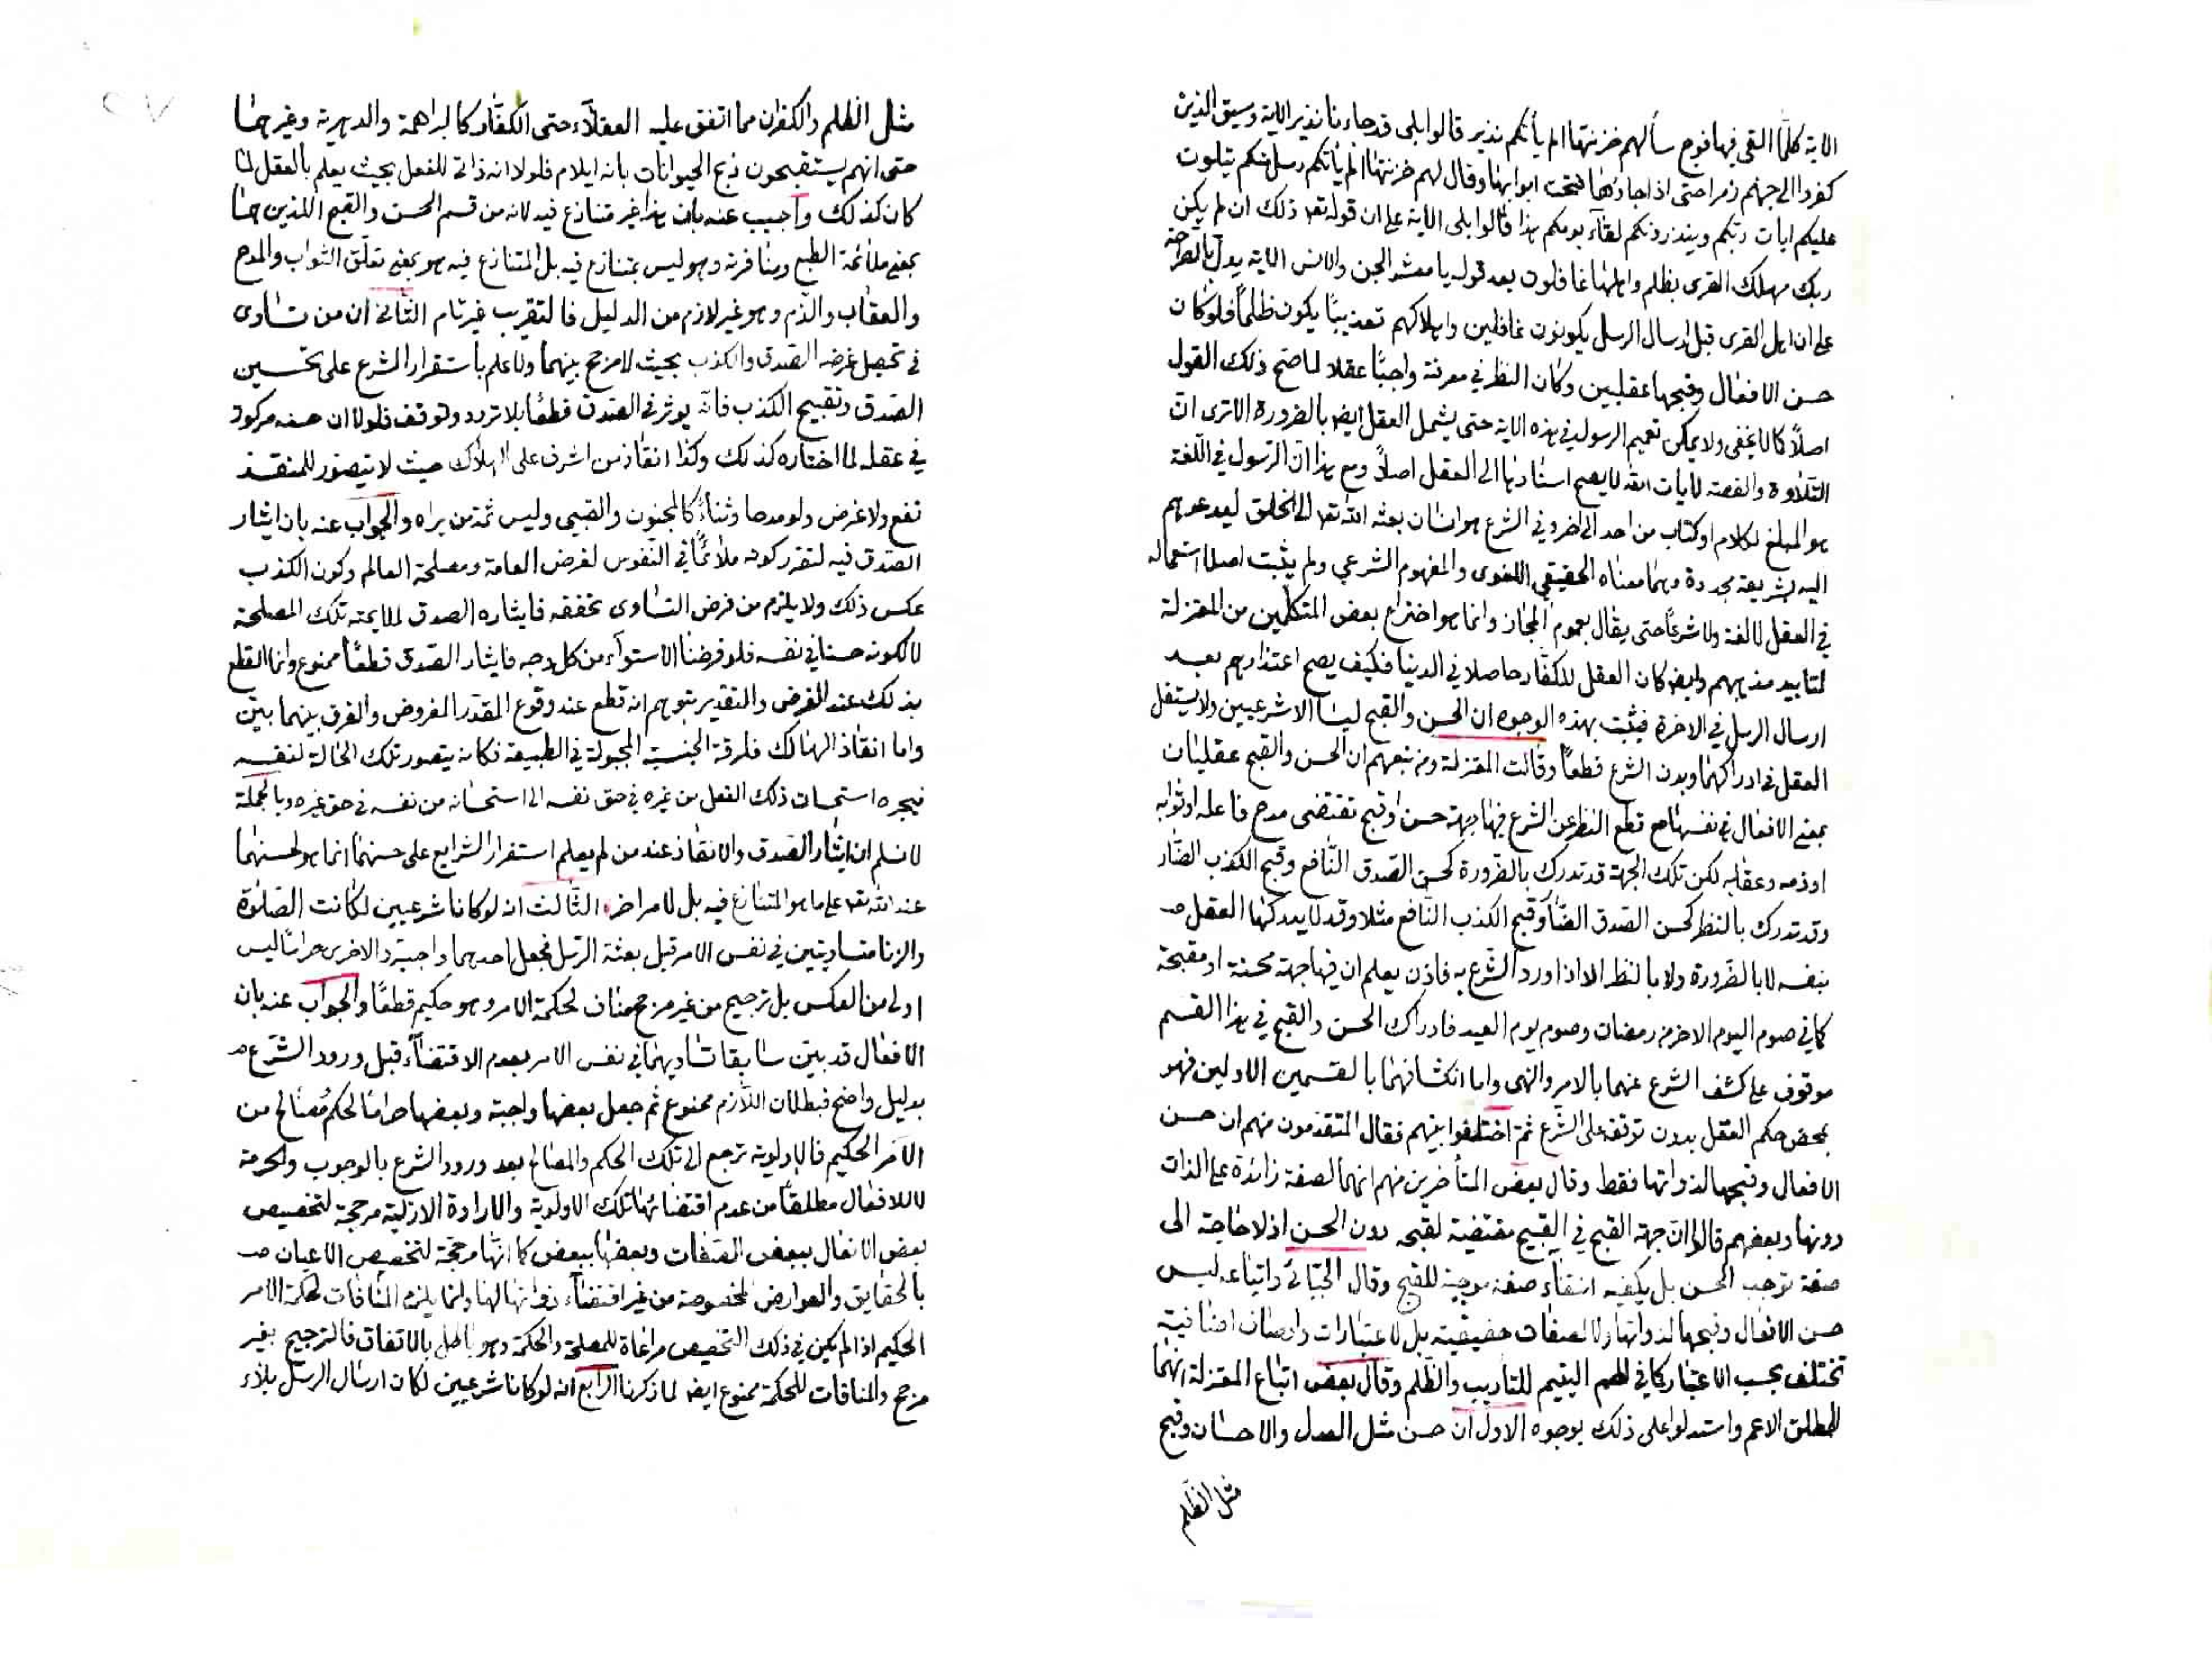 الاية كلما القى فيها فوج سألهم خزنتها الم يأتكم نذير قالوا بلى قد جاءنا نذير الاية وسيق الذين
كفروا الى جهنم زمرا حتى اذا جاؤها فتحت ابوابها وقال لهم خزنتها الم يأتكم رسل منكم يتلون
عليكم ايات ربكم وينذرونكم لقاء يومكم هذا قالوا بلى الاية على ان قوله تعه ذلك ان لم يكن
ربك مهلك القرى بظلم واهلها غافلون بعد قوله يا معشر الجن والانس الاية يدل بالصراحة
على ان اهل القرى قبل ارسال الرسل يكونون غافلين واهلاكهم تعذيبا يكون ظلما فلو كان
حسن الافعال وقبحها عقليين وكان النظر في معرفته واجبا عقلا لما صح ذلك القول
اصلا كما لا يخفى ولا يمكن تعميم الرسول في هذه الاية حتى يشمل العقل ايضا بالضرورة الا ترى ان
التلاوة والقصة لايات الله لا يصح اسنادها الى العقل اصلا ومع هذا ان الرسول في اللغة
هو المبلغ لكلام او كتاب من احد الى اخر وفي الشرع هو انسان بعثه الله تعه الى الخلق ليدعوهم
اليه بشريعة مجددة وهما معناه الحقيقي اللغوى والمفهوم الشرعي ولم يثبت اصلا استعماله
في العقل لا لغة ولا شرعا حتى يقال بعموم المجاز وانما هو اختراع بعض المتكلمين من المعتزلة
لتاييد مذهبهم وايضا كان العقل للكفار حاصلا في الدنيا فكيف يصح اعتذارهم بعد
ارسال الرسل في الاخرة فيثبت بهذه الوجوه ان الحسن والقبح ليسا الا شرعيين ولا يستقل
العقل في ادراكهما وبدون الشرع قطعا وقالت المعتزلة ومن تبعهم ان الحسن والقبح عقليان
بمعنى الافعال في نفسها مع قطع النظر عن الشرع فيها جهة حسن او قبح تقتضى مدح فاعله او ثوابه
او ذمه وعقابه لكن تلك الجهة قد تدرك بالضرورة كحسن الصدق النافع وقبح الكذب الضار
وقد تدرك بالنظر كحسن الصدق الضار وقبح الكذب النافع مثلا وقد لا يدركها العقل
بنفسه لا بالضرورة ولا بالنظر الا اذا ورد الشرع به فاذن يعلم ان فيها جهة محسنة او مقبحة
كما في صوم اليوم الاخر من رمضان وصوم يوم العيد فادراك الحسن والقبح في هذا القسم
موقوف على كشف الشرع عنهما بالامر والنهى واما انكشافهما بالقسمين الاولين فهو
بمحض حكم العقل بدون توقفه على الشرع ثم اختلفوا بينهم فقال المتقدمون منهم ان حسن
الافعال وقبحها لذواتها فقط وقال بعض المتأخرين منهم انهما لصفة زائدة على الذات
دونها وبعضهم قالوا ان جهة القبح في القبيح مقتضية لقبحه دون الحسن اذ لا حاجة الى
صفة توجب الحسن بل يكفيه انتفاء صفة موجبة للقبح وقال الجبائى واتباعه ليس
حسن الافعال وقبحها لذواتها ولا لصفات حقيقية بل لاعتبارات واوصاف اضافية
تختلف بحسب الاعتبار كما في لطم اليتيم للتأديب والظلم وقال بعض اتباع المعتزلة انهما
للمطلق الاعم واستدلوا على ذلك بوجوه الاول ان حسن مثل العدل والاحسان وقبح
مثل الظلم
مثل الظلم والكفران مما اتفق عليه العقلاء حتى الكفار كالبراهمة والدهرية وغيرهما
حتى انهم يستقبحون ذبح الحيوانات بانه ايلام فلولا انه ذاتى للفعل بحيث يعلم بالعقل لما
كان كذلك واجيب عنه بان هذا غير متنازع فيه لانه من قسم الحسن والقبح اللذين هما
بمعنى ملائمة الطبع ومنافرته وهو ليس بمتنازع فيه بل المتنازع فيه هو بمعنى تعلق الثواب والمدح
والعقاب والذم وهو غير لازم من الدليل فالتقريب غير تام الثانى ان من تساوى
في تحصيل غرضه الصدق والكذب بحيث لا مرجح بينهما ولا علم بأستقرار الشرع على تحسين
الصدق وتقبيح الكذب فانه يوثر في الصدق قطعا بلا تردد وتوقف فلولا ان حسنه مركوز
في عقله لما اختاره كذلك وكذا انقاذ من اشرف على الهلاك حيث لا يتصور للمنقذ
نفع ولا غرض ولو مدحا وثناء كالمجنون والصبى وليس ثمة من يراه والجواب عنه بان ايثار
الصدق فيه لتقرر كونه ملائما في النفوس لغرض العامة ومصلحة العالم وكون الكذب
عكس ذلك ولا يلزم من فرض التساوى تحققه فايثاره الصدق لملايمته تلك المصلحة
لا لكونه حسنا في نفسه فلو فرضنا الاستواء من كل وجه فايثار الصدق قطعا ممنوع وانما القطع
بذلك عند الفرض والتقدير بتوهم انه قطع عند وقوع المقدر المفروض والفرق بينهما بين
واما انقاذ الهالك فلرقة الجنسية المجبولة في الطبيعة فكانه يتصور تلك الحالة لنفسه
فيجره استحسان ذلك الفعل من غيره في حق نفسه الى استحسانه من نفسه في حق غيره وبالجملة
لا نسلم ان ايثار الصدق والانقاذ عند من لم يعلم استقرار الشرايع على حسنهما انما هو لحسنهما
عند الله تعه على ما هو المتنازع فيه بل لامر اخر الثالث انه لو كانا شرعيين لكانت الصلوة
والزنا متساويتين في نفس الامر قبل بعثة الرسل فجعل احدهما واجبة والاخرى حراما ليس
اولى من العكس بل ترجيح من غير مرجح مناف لحكمة الامر وهو حكيم قطعا والجواب عنه بان
الافعال قد بين سابقا تساويهما في نفس الامر بعدم الاقتضاء قبل ورود الشرع
بدليل واضح فبطلان اللازم ممنوع ثم جعل بعضها واجبة وبعضها حراما لحكم ومصالح من
الآمر الحكيم فالاولوية ترجع الى تلك الحكم والمصالح بعد ورود الشرع بالوجوب والحرمة
لا للافعال مطلقا من عدم اقتضائها تلك الاولوية والارادة الازلية مرجحة لتخصيص
بعض الافعال ببعض الصفات وبعضها ببعض كما انها مرجحة لتخصيص الاعيان
بالحقايق والعوارض المخصوصة من غير اقتضاء ذواتها لها وانما يلزم المنافات لحكمة الآمر
الحكيم اذا لم يكن في ذلك التخصيص مراعاة للمصلحة والحكمة وهو باطل بالاتفاق فالترجيح بغير
مرجح والمنافات للحكمة ممنوع ايضا لما ذكرنا الرابع انه لو كانا شرعيين لكان ارسال الرسل بلاء